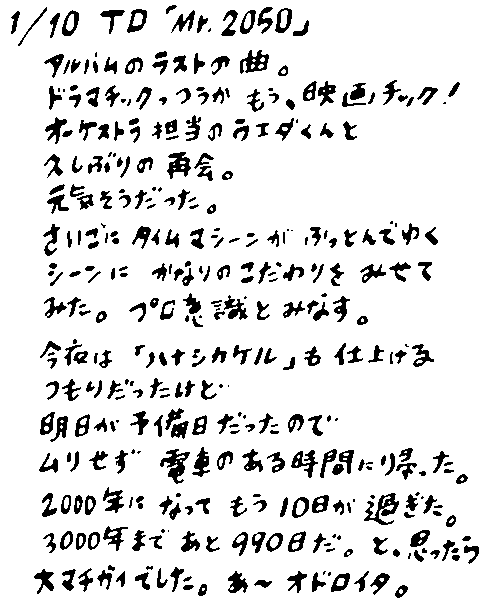 1/10 TD「Mr. 2050」
アルバムのラストの曲。
ドラマチックっつうか もう、映画チック!
オーケストラ担当のウエダくんと
久しぶりの再会。
元気そうだった。
さいごに タイムマシーンが ぶっとんでゆく
シーンに かなりのこだわりを みせて
みた。 プロ意識とみなす。
今夜は「ハナシカケル」も仕上げる
つもりだったけど
明日が 予備日だったので
ムリせず 電車のある時間に帰った。
2000年に なって もう 10日が 過ぎた。
3000年まで あと 990日だ。 と、思ったら
大マチガイでした。 あ〜 オドロイタ。